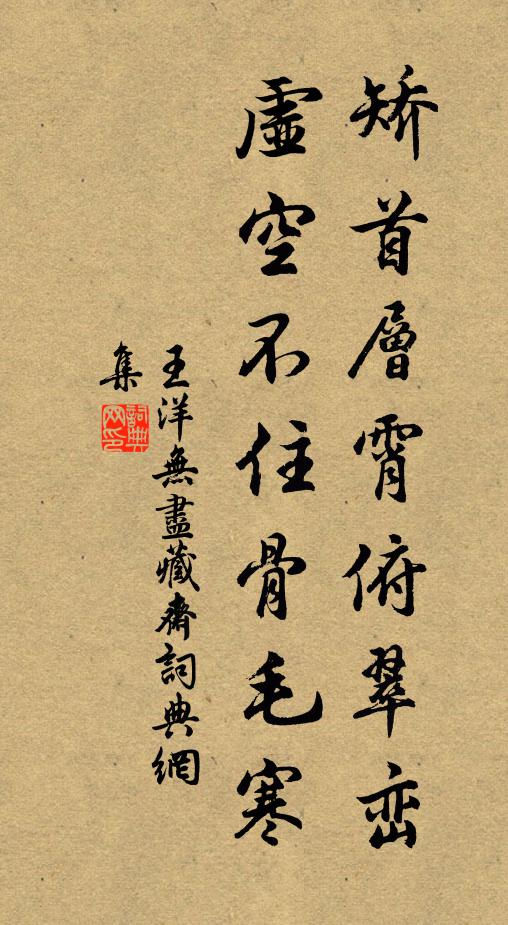 矯首層霄俯翠峦
虛空不住骨毛寒
王洋無盡藏齋詞典網
集
詞典
网印